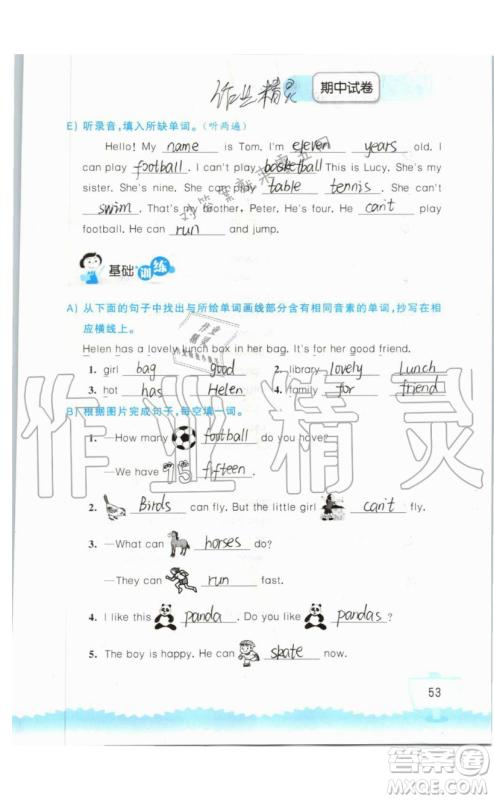 作业精灵
期中试卷
E) 听录音,填入所缺单词。(听两遍)
Hello! My name is Tom. I'm eleven years old. I
can play football. I can't play basketball. This is Lucy. She's my
sister. She's nine. She can play table tennis. She can't
swim. That's my brother, Peter. He's four. He can't play
football. He can run and jump.
基础训练
A) 从下面的句子中找出与所给单词画线部分含有相同音素的单词,抄写在相
应横线上。
Helen has a lovely lunch box in her bag. It's for her good friend.
1. girl bag good 2. library lovely Lunch
3. hot has Helen 4. family for friend
B) 根据图片完成句子,每空填一词。
1. —How many football do you have?
—We have 15 fifteen.
2. Birds can fly. But the little girl can't fly.
3. —What can horses do?
—They can run fast.
4. I like this panda. Do you like pandas?
5. The boy is happy. He can skate now.
53
作业精灵
答案圈